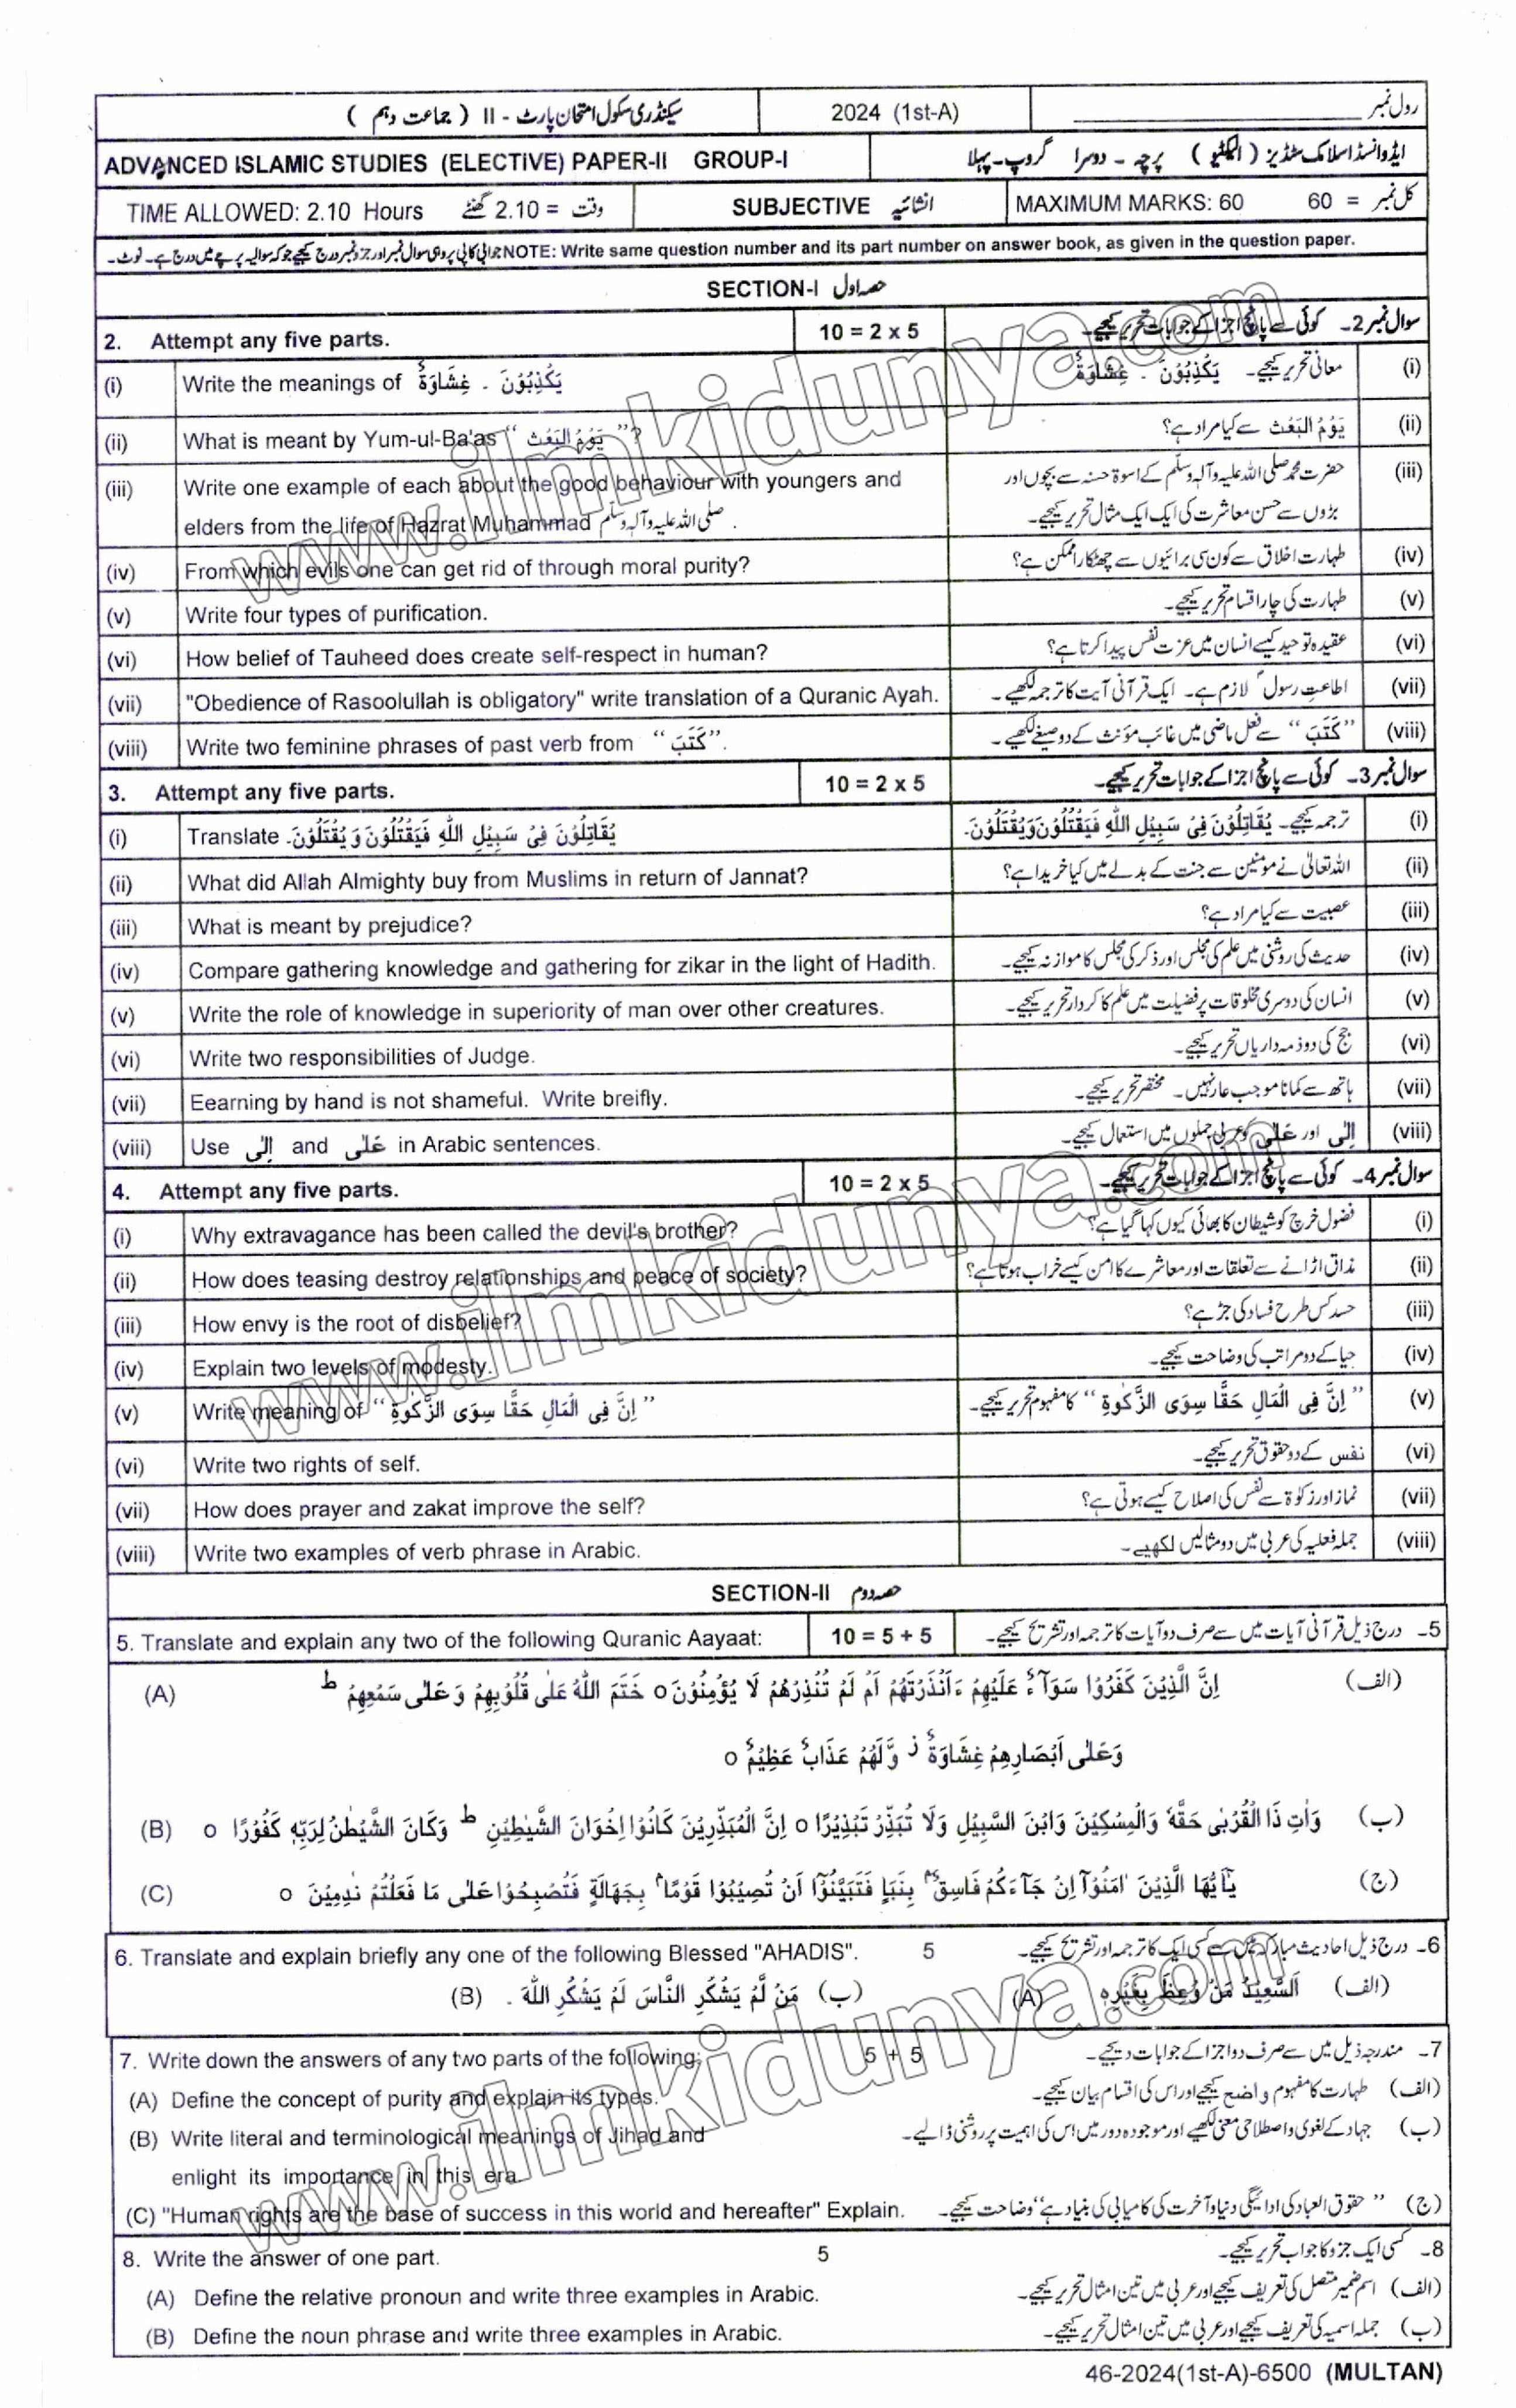 سیکنڈری سکول امتحان پارٹ - II ( جماعت دہم )
2024 (1st-A)
رول نمبر
ADVANCED ISLAMIC STUDIES (ELECTIVE) PAPER-II GROUP-I
ایڈوانسڈ اسلامک سٹڈیز ( الیکٹیو ) پرچہ - دوسرا گروپ - پہلا
TIME ALLOWED: 2.10 Hours وقت = 2.10 گھنٹے
SUBJECTIVE انشائیہ
MAXIMUM MARKS: 60 کل نمبر = 60
NOTE: Write same question number and its part number on answer book, as given in the question paper.
نوٹ - جوابی کاپی پر وہی سوال نمبر اور جز نمبر درج کیجیے جو کہ سوالیہ پرچے میں درج ہے۔
SECTION-I حصہ اول
2. Attempt any five parts. 10 = 2 x 5 سوال نمبر 2۔ کوئی سے پانچ اجزا کے جوابات تحریر کیجیے۔
(i) Write the meanings of يَكْذِبُوْنَ ۔ غِشَاوَةٌ
(i) معانی تحریر کیجیے۔ يَكْذِبُوْنَ ۔ غِشَاوَةٌ
(ii) What is meant by Yum-ul-Ba'as “ يَوْمُ الْبَعْث ”?
(ii) يَوْمُ الْبَعْث سے کیا مراد ہے؟
(iii) Write one example of each about the good behaviour with youngers and
elders from the life of Hazrat Muhammad صلی اللہ علیہ وآلہ وسلم .
(iii) حضرت محمد صلی اللہ علیہ وآلہ وسلم کے اسوۂ حسنہ سے بچوں اور
بڑوں سے حسن معاشرت کی ایک ایک مثال تحریر کیجیے۔
(iv) From which evils one can get rid of through moral purity?
(iv) طہارت اخلاق سے کون سی برائیوں سے چھٹکارا ممکن ہے؟
(v) Write four types of purification.
(v) طہارت کی چار اقسام تحریر کیجیے۔
(vi) How belief of Tauheed does create self-respect in human?
(vi) عقیدہ توحید کیسے انسان میں عزت نفس پیدا کرتا ہے؟
(vii) "Obedience of Rasoolullah is obligatory" write translation of a Quranic Ayah.
(vii) اطاعتِ رسولؐ لازم ہے۔ ایک قرآنی آیت کا ترجمہ لکھیے۔
(viii) Write two feminine phrases of past verb from “ كَتَبَ ”.
(viii) “ كَتَبَ ” سے فعل ماضی میں غائب مؤنث کے دو صیغے لکھیے۔
3. Attempt any five parts. 10 = 2 x 5 سوال نمبر 3۔ کوئی سے پانچ اجزا کے جوابات تحریر کیجیے۔
(i) Translate يُقَاتِلُوْنَ فِيْ سَبِيْلِ اللّٰهِ فَيَقْتُلُوْنَ وَ يُقْتَلُوْنَ۔
(i) ترجمہ کیجیے۔ يُقَاتِلُوْنَ فِيْ سَبِيْلِ اللّٰهِ فَيَقْتُلُوْنَ وَيُقْتَلُوْنَ۔
(ii) What did Allah Almighty buy from Muslims in return of Jannat?
(ii) اللہ تعالیٰ نے مومنین سے جنت کے بدلے میں کیا خریدا ہے؟
(iii) What is meant by prejudice?
(iii) عصبیت سے کیا مراد ہے؟
(iv) Compare gathering knowledge and gathering for zikar in the light of Hadith.
(iv) حدیث کی روشنی میں علم کی مجلس اور ذکر کی مجلس کا موازنہ کیجیے۔
(v) Write the role of knowledge in superiority of man over other creatures.
(v) انسان کی دوسری مخلوقات پر فضیلت میں علم کا کردار تحریر کیجیے۔
(vi) Write two responsibilities of Judge.
(vi) جج کی دو ذمہ داریاں تحریر کیجیے۔
(vii) Eearning by hand is not shameful. Write breifly.
(vii) ہاتھ سے کمانا موجب عار نہیں۔ مختصر تحریر کیجیے۔
(viii) Use اِلٰى and عَلٰى in Arabic sentences.
(viii) اِلٰى اور عَلٰى کو عربی جملوں میں استعمال کیجیے۔
4. Attempt any five parts. 10 = 2 x 5 سوال نمبر 4۔ کوئی سے پانچ اجزا کے جوابات تحریر کیجیے۔
(i) Why extravagance has been called the devil's brother?
(i) فضول خرچ کو شیطان کا بھائی کیوں کہا گیا ہے؟
(ii) How does teasing destroy relationships and peace of society?
(ii) مذاق اڑانے سے تعلقات اور معاشرے کا امن کیسے خراب ہوتا ہے؟
(iii) How envy is the root of disbelief?
(iii) حسد کس طرح فساد کی جڑ ہے؟
(iv) Explain two levels of modesty.
(iv) حیا کے دو مراتب کی وضاحت کیجیے۔
(v) Write meaning of “ اِنَّ فِى الْمَالِ حَقًّا سِوَى الزَّكٰوةِ ”
(v) “ اِنَّ فِى الْمَالِ حَقًّا سِوَى الزَّكٰوةِ ” کا مفہوم تحریر کیجیے۔
(vi) Write two rights of self.
(vi) نفس کے دو حقوق تحریر کیجیے۔
(vii) How does prayer and zakat improve the self?
(vii) نماز اور زکوٰۃ سے نفس کی اصلاح کیسے ہوتی ہے؟
(viii) Write two examples of verb phrase in Arabic.
(viii) جملہ فعلیہ کی عربی میں دو مثالیں لکھیے۔
SECTION-II حصہ دوم
5. Translate and explain any two of the following Quranic Aayaat: 10 = 5 + 5 5۔ درج ذیل قرآنی آیات میں سے صرف دو آیات کا ترجمہ اور تشریح کیجیے۔
(A) (الف) اِنَّ الَّذِيْنَ كَفَرُوْا سَوَآءٌ عَلَيْهِمْ ءَاَنْذَرْتَهُمْ اَمْ لَمْ تُنْذِرْهُمْ لَا يُؤْمِنُوْنَ o خَتَمَ اللّٰهُ عَلٰى قُلُوْبِهِمْ وَ عَلٰى سَمْعِهِمْ ط
وَعَلٰى اَبْصَارِهِمْ غِشَاوَةٌ ز وَّلَهُمْ عَذَابٌ عَظِيْمٌ o
(B) (ب) وَاٰتِ ذَا الْقُرْبٰى حَقَّهٗ وَالْمِسْكِيْنَ وَابْنَ السَّبِيْلِ وَلَا تُبَذِّرْ تَبْذِيْرًا o اِنَّ الْمُبَذِّرِيْنَ كَانُوْا اِخْوَانَ الشَّيٰطِيْنِ ط وَكَانَ الشَّيْطٰنُ لِرَبِّهٖ كَفُوْرًا o
(C) (ج) يٰٓاَيُّهَا الَّذِيْنَ اٰمَنُوْٓا اِنْ جَآءَكُمْ فَاسِقٌ بِنَبَاٍ فَتَبَيَّنُوْٓا اَنْ تُصِيْبُوْا قَوْمًا بِجَهَالَةٍ فَتُصْبِحُوْا عَلٰى مَا فَعَلْتُمْ نٰدِمِيْنَ o
6. Translate and explain briefly any one of the following Blessed "AHADIS". 5 6۔ درج ذیل احادیث مبارکہ میں سے کسی ایک کا ترجمہ اور تشریح کیجیے۔
(A) (الف) اَلسَّعِيْدُ مَنْ وُعِظَ بِغَيْرِهٖ (B) (ب) مَنْ لَّمْ يَشْكُرِ النَّاسَ لَمْ يَشْكُرِ اللّٰهَ ۔
7. Write down the answers of any two parts of the following; 5 + 5 7۔ مندرجہ ذیل میں سے صرف دو اجزا کے جوابات دیجیے۔
(A) Define the concept of purity and explain its types. (الف) طہارت کا مفہوم واضح کیجیے اور اس کی اقسام بیان کیجیے۔
(B) Write literal and terminological meanings of Jihad and (ب) جہاد کے لغوی واصطلاحی معنی لکھیے اور موجودہ دور میں اس کی اہمیت پر روشنی ڈالیے۔
enlight its importance in this era.
(C) "Human rights are the base of success in this world and hereafter" Explain. (ج) “ حقوق العباد کی ادائیگی دنیا و آخرت کی کامیابی کی بنیاد ہے” وضاحت کیجیے۔
8. Write the answer of one part. 5 8۔ کسی ایک جزو کا جواب تحریر کیجیے۔
(A) Define the relative pronoun and write three examples in Arabic. (الف) اسم ضمیر متصل کی تعریف کیجیے اور عربی میں تین امثال تحریر کیجیے۔
(B) Define the noun phrase and write three examples in Arabic. (ب) جملہ اسمیہ کی تعریف کیجیے اور عربی میں تین امثال تحریر کیجیے۔
46-2024(1st-A)-6500 (MULTAN)
www.ilmkidunya.com
www.ilmkidunya.com
www.ilmkidunya.com